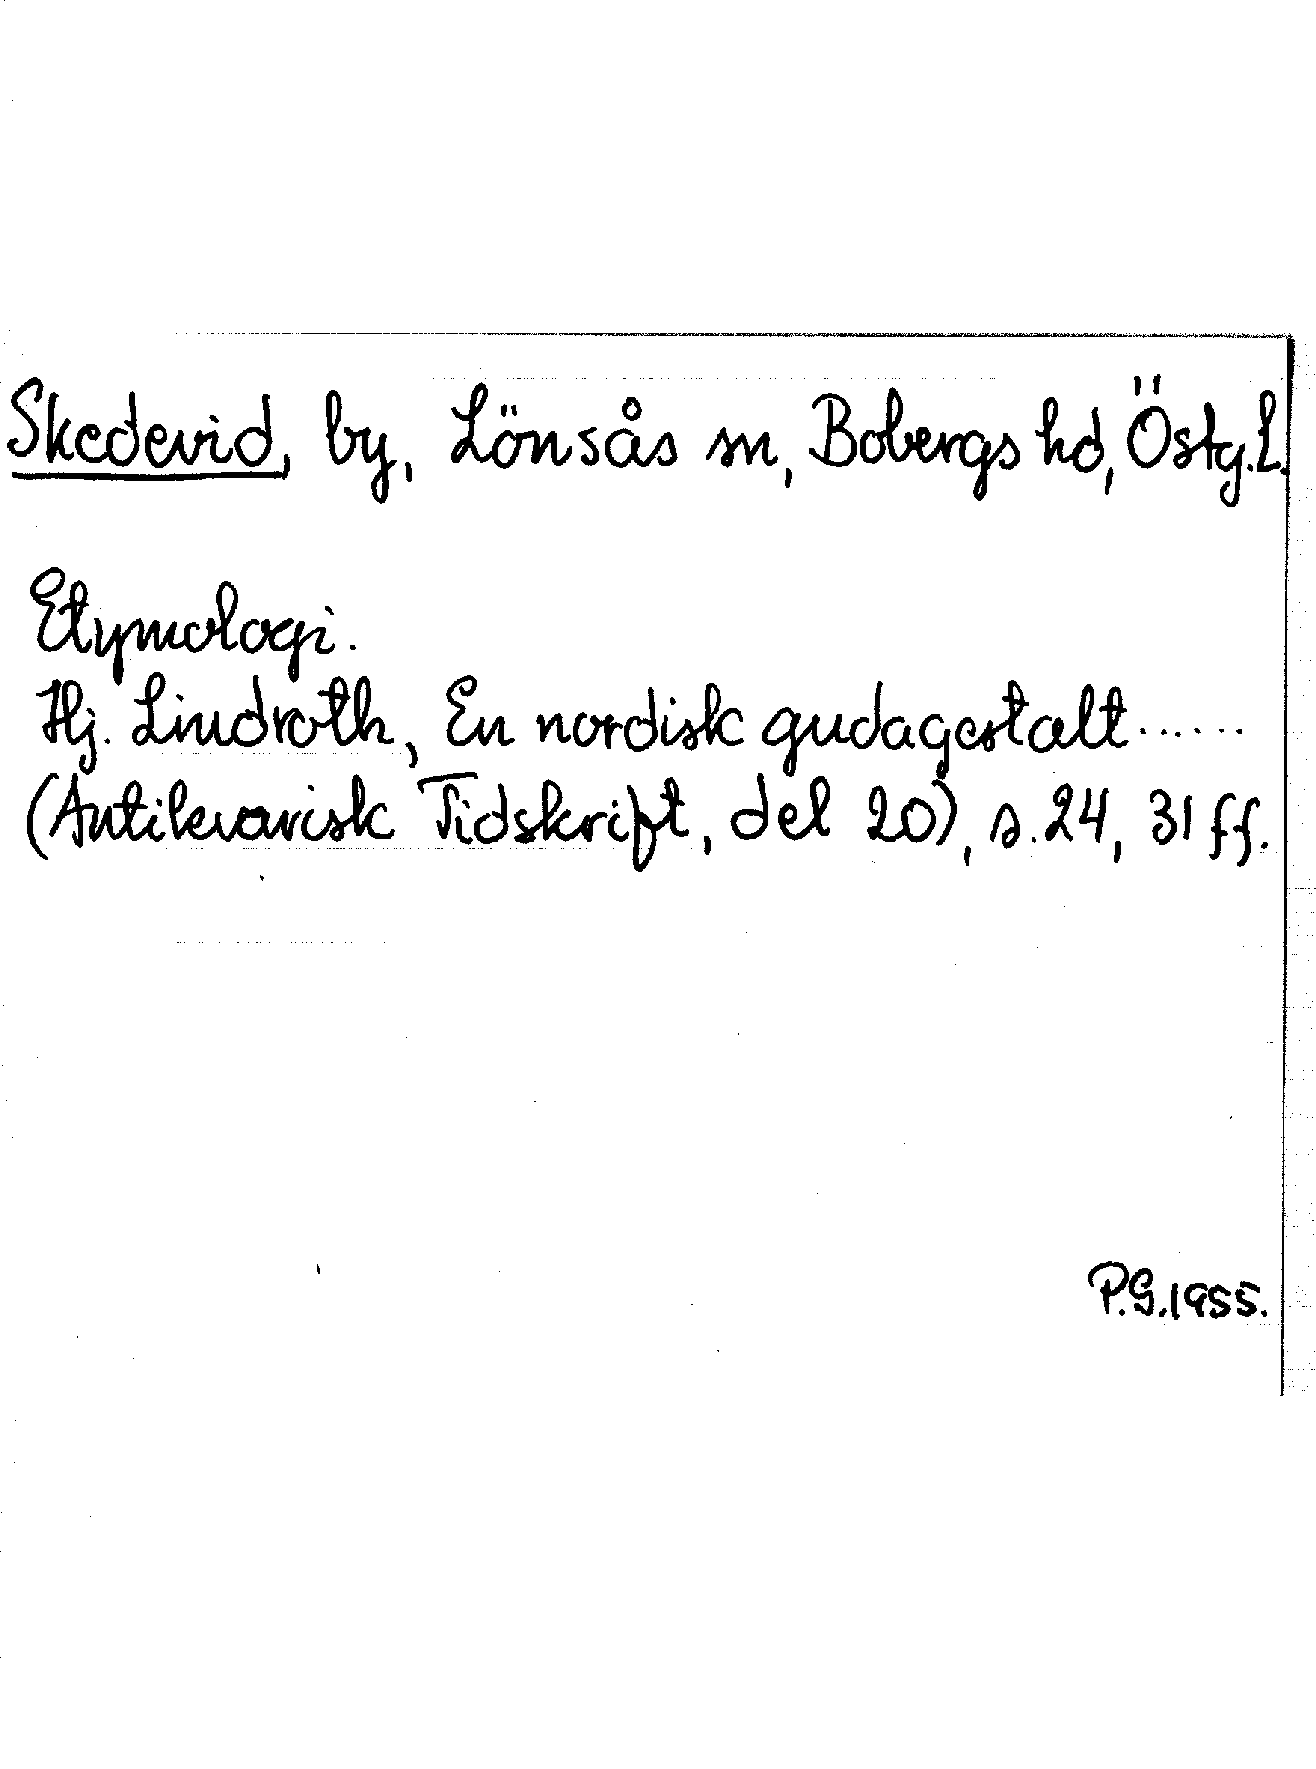 Skedevid, by, Lönsås sn, Bobergs hd, Östg.L.
Etymologi.
Hj. Lindroth, En nordisk gudagestalt ......
(Antikvarisk Tidskrift, del 20), s. 24, 31 ff.
P.G. 1955.